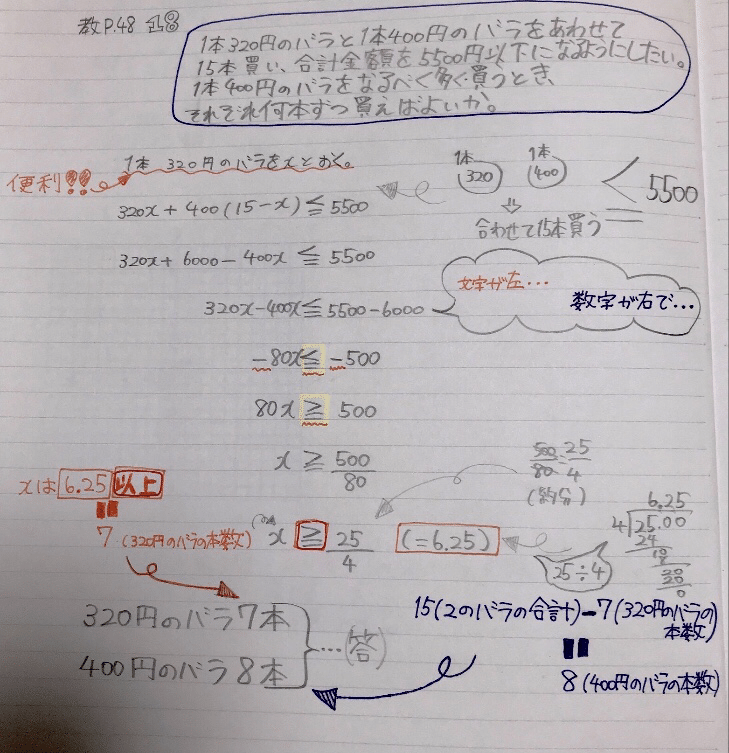 教P.48
1本320円のバラと1本400円のバラをあわせて
15本買い、合計金額を5500円以下になるようにしたい。
1本400円のバラをなるべく多く買うとき、
それぞれ何本ずつ買えばよいか。
便利!!
1本 320円のバラをxとおく。
320x + 400(15-x) ≦ 5500
1本 320
1本 400
< 5500
合わせて15本買う
320x + 6000 - 400x ≦ 5500
文字が左…
数字が右で…
320x-400x ≦ 5500-6000
-80x ≦ -500
80x ≧ 500
x ≧ 500/80
500/80 = 25/4
(約分)
xは 6.25 以上
7 (320円のバラの本数)
x ≧ 25/4 (=6.25)
25÷4
6.25
4 25.00
24
10
8
20
20
0
320円のバラ7本
400円のバラ8本
…(答)
15(2のバラの合計)-7(320円のバラの本数)
8(400円のバラの本数)